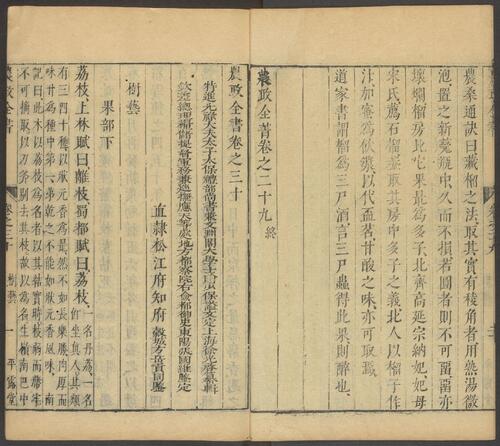 農桑通訣曰藏榴之法取其實有稜角者用熱湯微
泡置之新甆瓶中久而不損若圓者則不可留留亦
壞爛榴房比它果最為多子北齊高延宗納妃妃母
宋氏薦石榴蓋取其房中多子之義北人以榴子作
汁加蜜為飲漿以代盃茗甘酸之味亦可取焉
道家書謂榴為三尸酒言三尸蟲得此果則醉也
農政全書卷之二十九 終
農政全書卷之三十
特進光祿大夫太子太保禮部尚書兼文淵閣大學士贈少保諡文定上海徐光啟纂輯
欽差總理糧儲提督軍務兼巡撫應天等處地方都察院右僉都御史東陽張國維鑒定
直隸松江府知府 穀城方岳貢同鑒
樹藝
果部下
荔枝上林賦曰離枝蜀都賦曰荔枝 一名丹荔一名
有三四十種以狀元香為最然不如長樂勝內厚而
味甘為種中第一弟乾之不能如狀元香風味南
記曰此木以荔枝為名者以其結實時枝弱而蒂牢
不可摘取以刀斧劙去其枝故以為名生嶺南巴中
農政全書
卷之三十
樹藝
一
平露堂